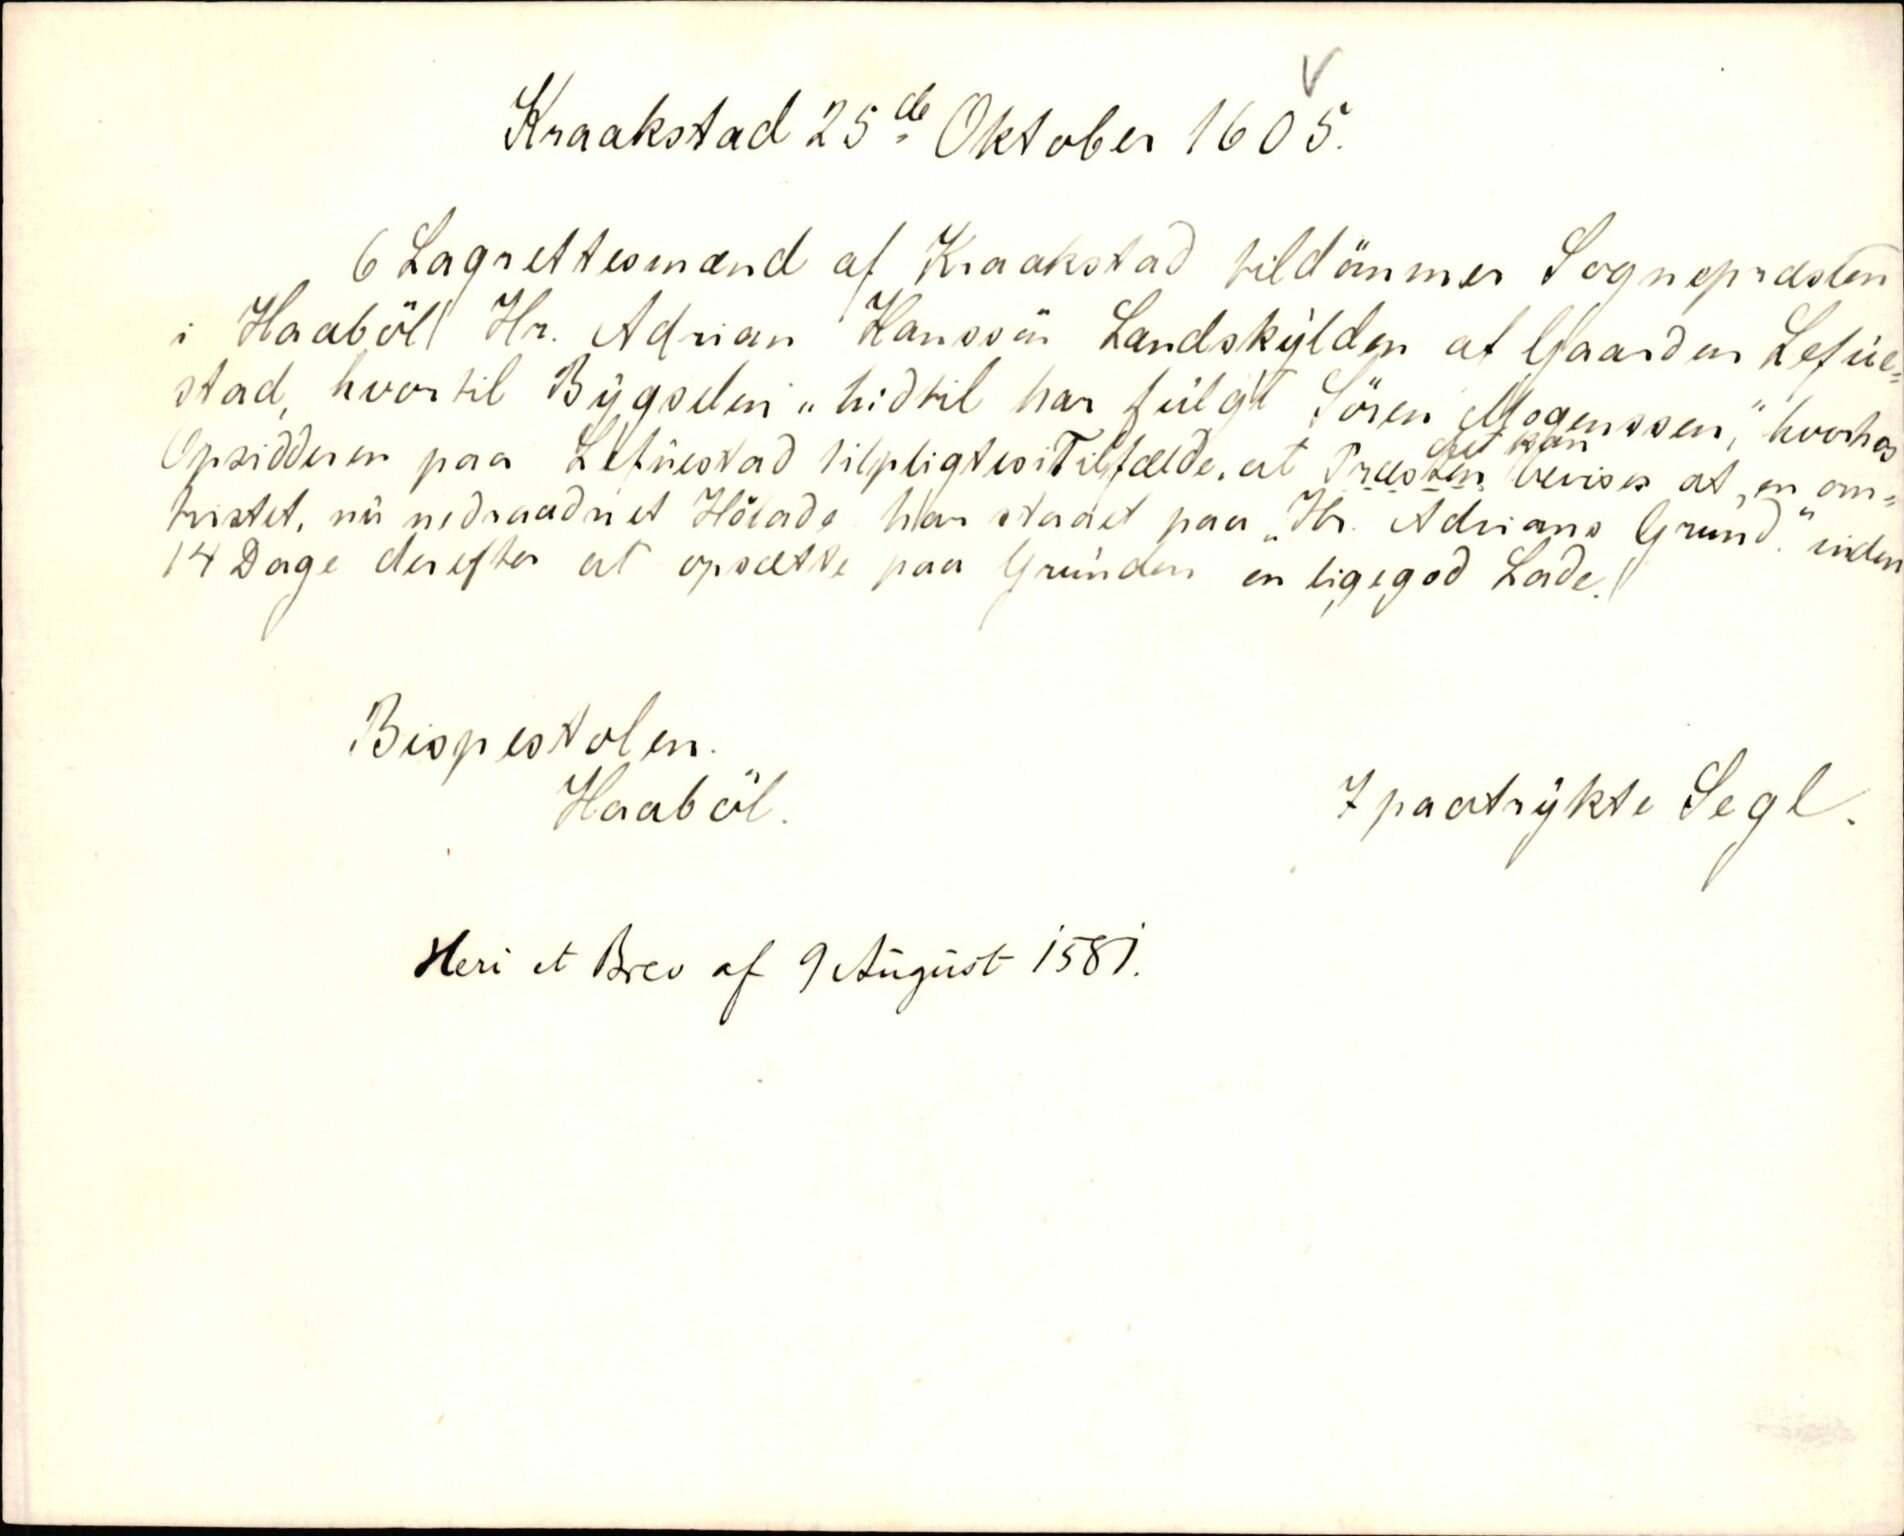 Kraakstad 25de Oktober 1605.
6 Lagrettesmænd af Kraakstad tildömmer Sognepræsten
i Haaböl Hr. Adrian Hanssön Landskylden af Gaarden Lefue=
stad, hvortil Bygselen „hidtil har fulgt Sören Mogenssen,“ hvorhos
Opsidderen paa Lefuestad tilpligtes i Tilfælde, at Præsten det kan bevises at en om=
tvistet, nu nedraadnet Hölade har staaet paa „Hr. Adrians Grund.“ inden
14 Dage derefter at opsætte paa Grunden en ligegod Lade.
Bispestolen.
Haaböl.
7 paatrykte Segl.
Heri et Brev af 9 August 1581.